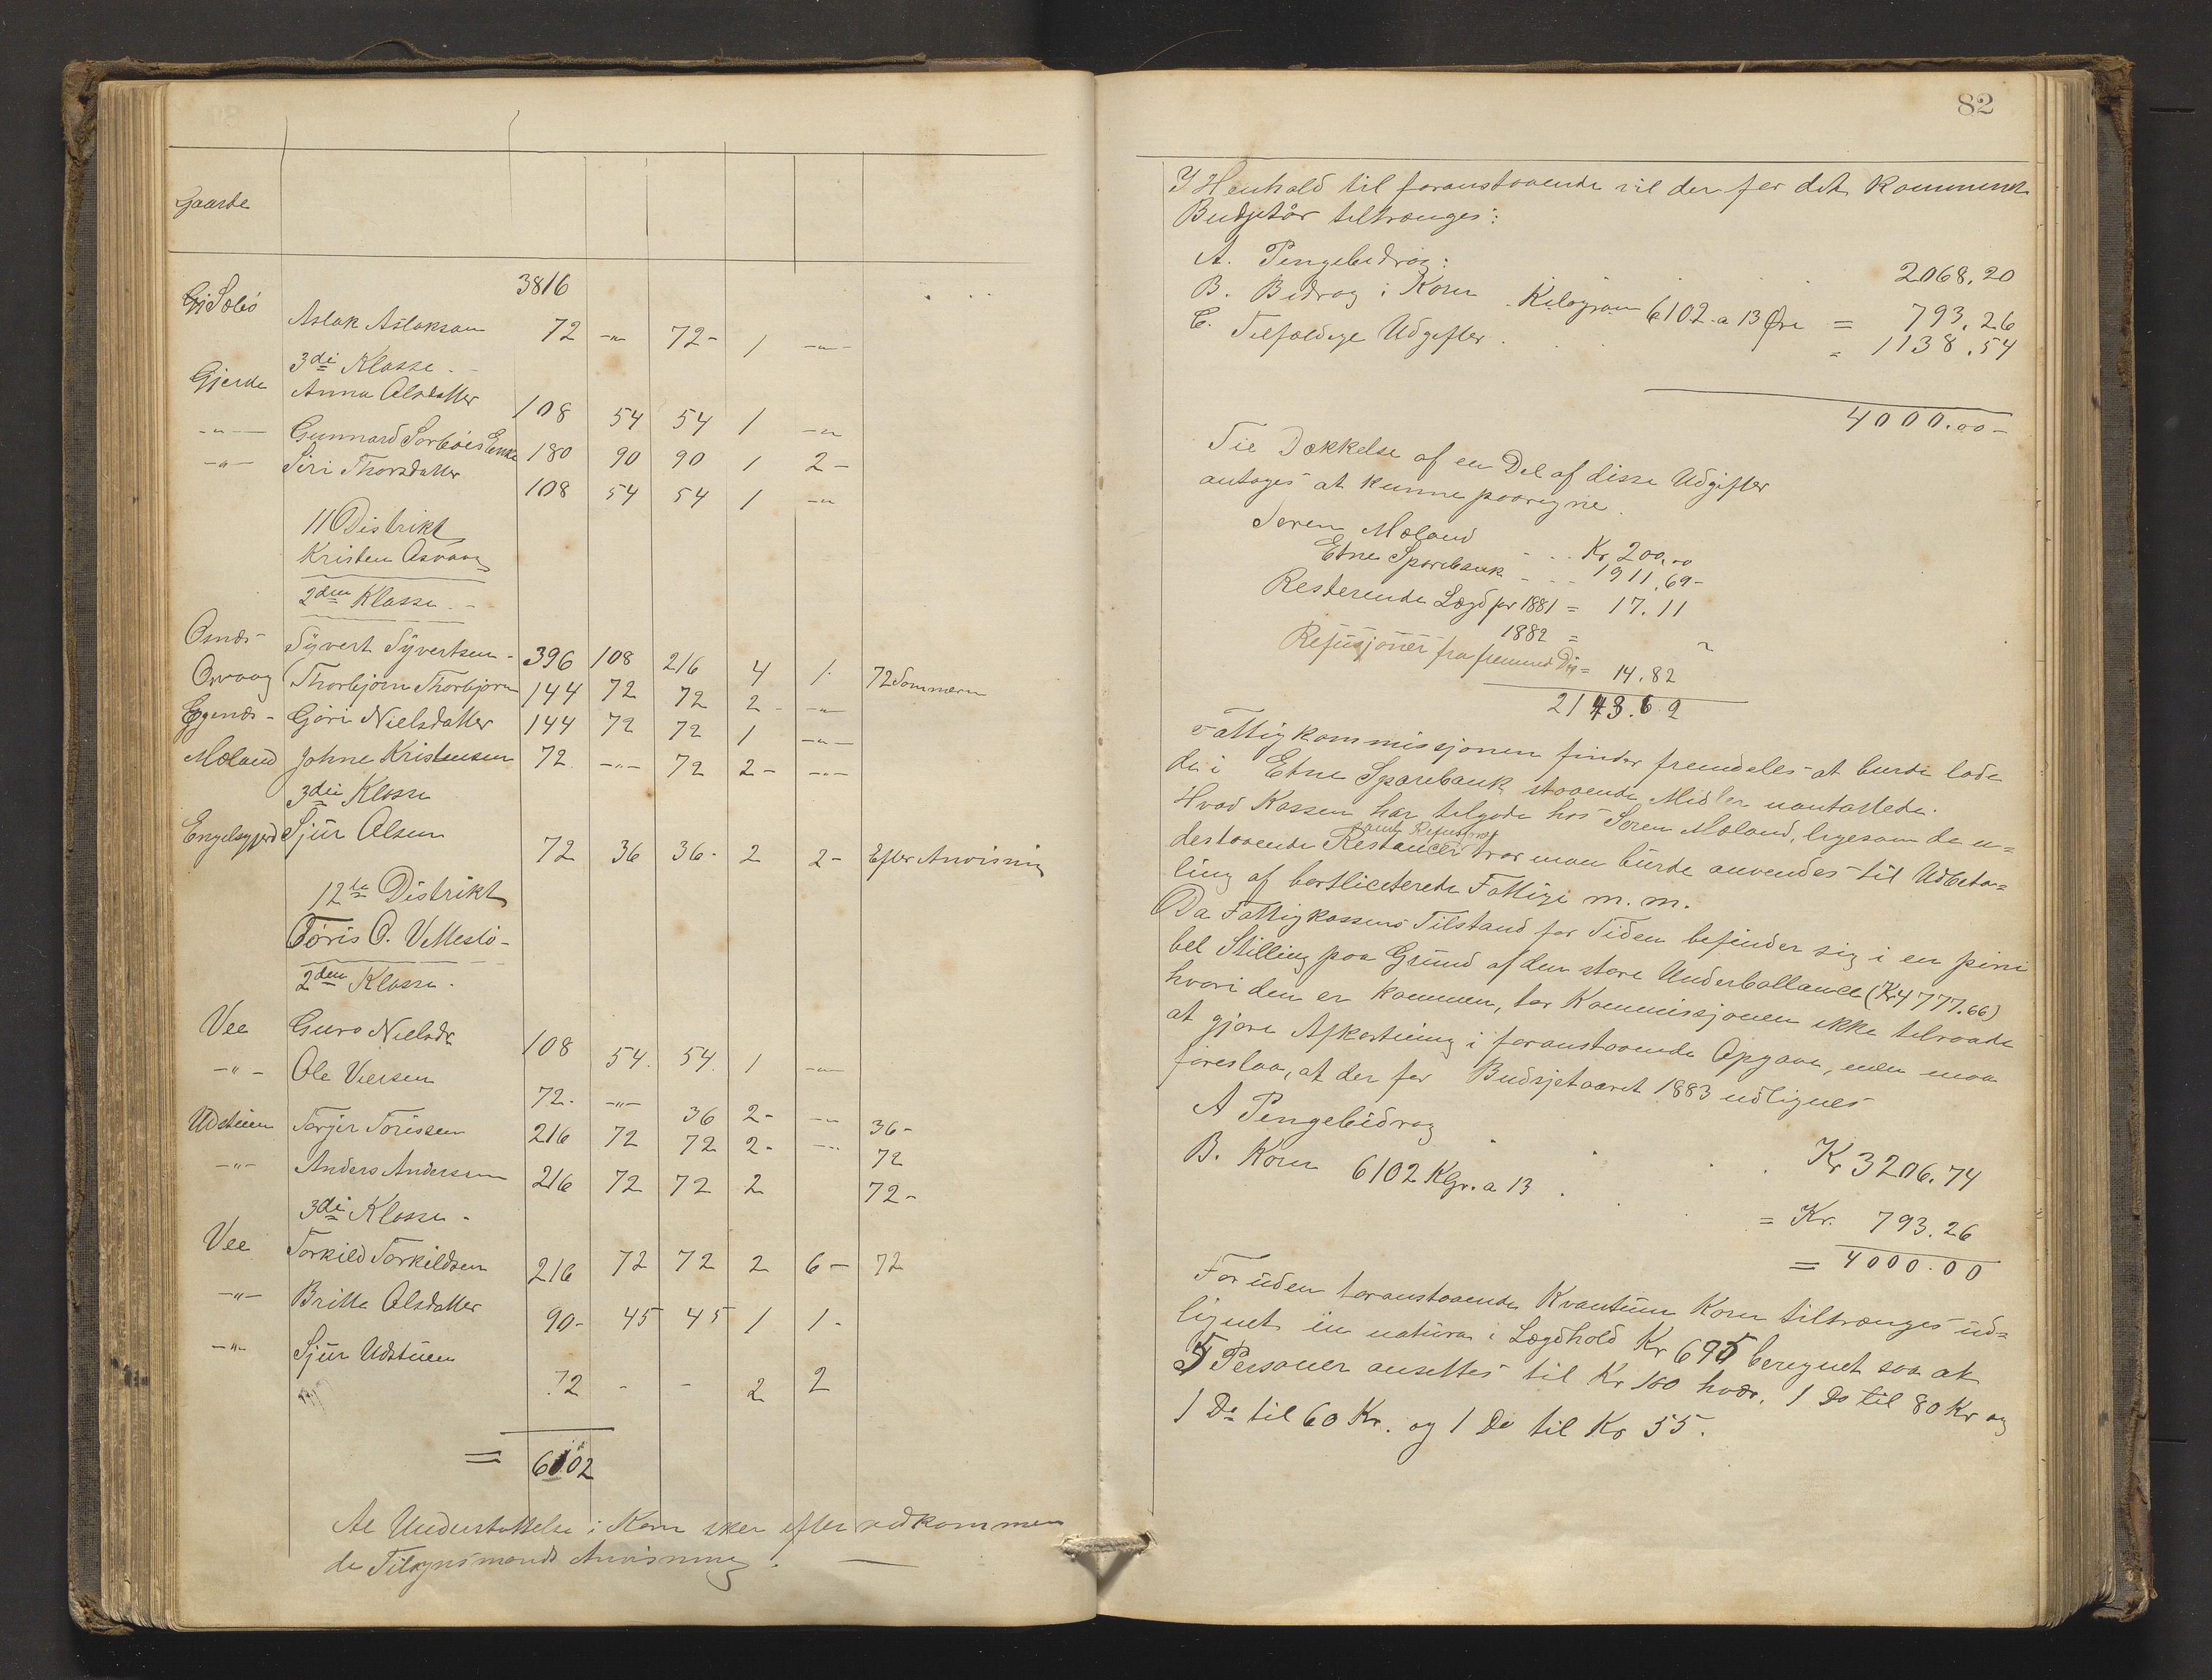 Gaarde
3816
Sæbö Aslak Aslaksen 72 -"- 72- 1 -"-
3die Klasse
Gjerde Anna Olsdatter 108 54 54 1 -"-
-"- Gunnard Sørbøes Enke 180 90 90 1 2-
-"- Siri Thorsdatter 108 54 54 1 -"-
11 Distrikt
Kristen Osvaag
2den Klasse
Osnes Syvert Syvertsen - 396 108 216 4 1. 72 Sommeren
Osvaag Thorbjørn Thorbjørn 144 72 72 2 -"-
Egenes- Göri Nielsdatter 144 72 72 1 -"-
Mæland Johne Kristensen 72 -"- 72 2- -"-
3die Klasse
Engelsgjerd Sjur Olsen 72 36 36- 2 2- Efter Anvisning
12te Distrikt
Tøris O. Vettestø-
2den Klasse.
Vee Guro Nielsdr 108 54. 54. 1 -"-
-"- Ole Veersen 72- -"- 36 2- -"- 36-
Udstuen Torger Torissen 216 72 72 2- -"- 72
-"- Anders Andersen 216 72 72 2 72-
3die Klasse-
Vee Torkild Torkildsen 216 72 72 2 6- 72
-"- Britta Olsdatter 90- 45 45 1 1-
-"- Sjur Udstuen 72 - - 2 2
= 6102
Al Understøttelse i Korn sker efter vedkommen
de Tilsynsmands Anvisning.
82
I Henhold til foranstaaende vil der for det kommende
Budgetår tiltrænges:
A. Pengebidrag: 2068.20
B. Bidrag i Korn Kilogram 6102 a 13 Øre = 793.26
C. Tilfældige Udgifter . = 1138.54
4000.00-
Til Dækkelse af en Del af disse Udgifter
antages at kunne paaregne.
Søren Mæland - - Kr 200.00
Etne Sparebank - - - 1911.69-
Resterende Lægd for 1881 = 17.11
1882 = "
Refusjoner fra fremmed Dis = 14.82
2143.62
Fattigkommissjonen finder fremdeles at burde lade
de i Etne Sparebank staaende Midler uantastede.
Hvad Kassen har tilgode hos Søren Mæland, ligesom de u=
destaaende Restancer samt Refusjoner tror man burde anvendes til Udbeta=
ling af bortliciterede Fattige m. m.
Da Fattigkassens Tilstand for Tiden befinder sig i en pini
bel Stilling paa Grund af den store Underballance (Kr 4777.66)
hvori den er kommen, tør Kommissjonen ikke tilraade
at gjøre Afkortning i foranstaaende Opgave, men maa
foreslaa, at der for Budsjetaaret 1883 udlignes
A Pengebidrag . . . Kr 3206.74
B. Korn 6102 Kgr. a 13 . = Kr. 793.26
= 4000.00
Foruden foranstaaende Kvantum Korn tiltrænges ud=
lignet in natura i Lægdhold Kr 695 beregnet saa at
5 Personer ansettes til Kr 100 hver, 1 Do til 80 Kr og
1 Do til 60 Kr. og 1 Do til Kr 55.